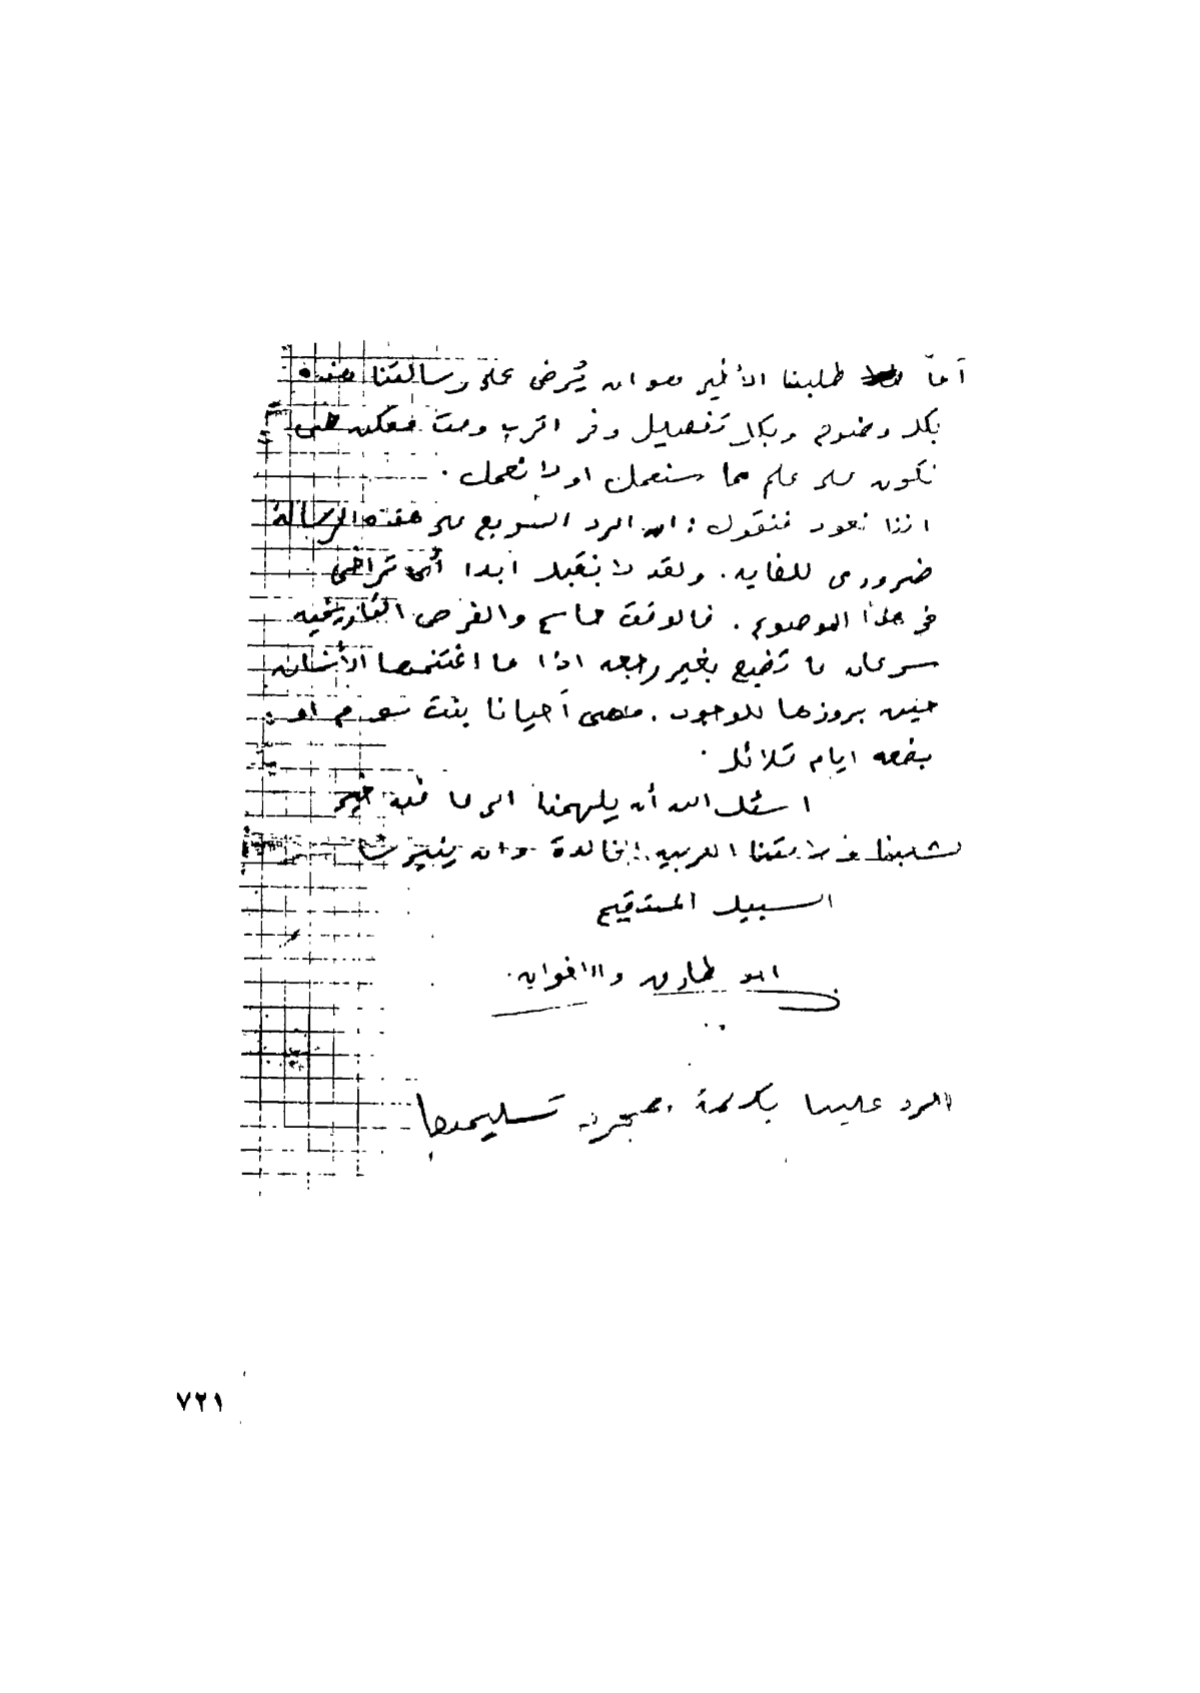 أما طلبنا الأخير هو ان يُرد على رسالتنا هذه
بكل وضوح وبكل تفصيل وفي اقرب وقت ممكن حتى
نكون على علم مما سنعمل او لا نعمل .
اذا نعود فنقول : ان الرد السريع على هذه الرسالة
ضروري للغايه . ولقد لا نقبل ابدا أي تراخي
في هذا الموضوع . فالوقت حاسم والفرص التاريخيه
سرعان ما تضيع بغير رجعه اذا ما اغتنمها الأنسان
حين بروزها للوجود . فهي أحيانا بنت يوم او
بضعه ايام قلائل .
اسئل الله أن يلهمنا الى ما فيه خير
لشعبنا و لامتنا العربيه الخالدة وان ينير لنا
السبيل المستقيم
ابو طارق والاخوان .
الرد علينا بكلمة بمجرد تسليمها
٧٢١